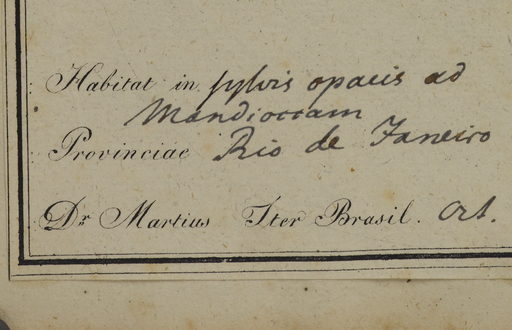 Habitat in sylvis opacis ad
Mandioccam
Provinciae Rio de Janeiro
Dr Martius Iter Brasil. Oct.